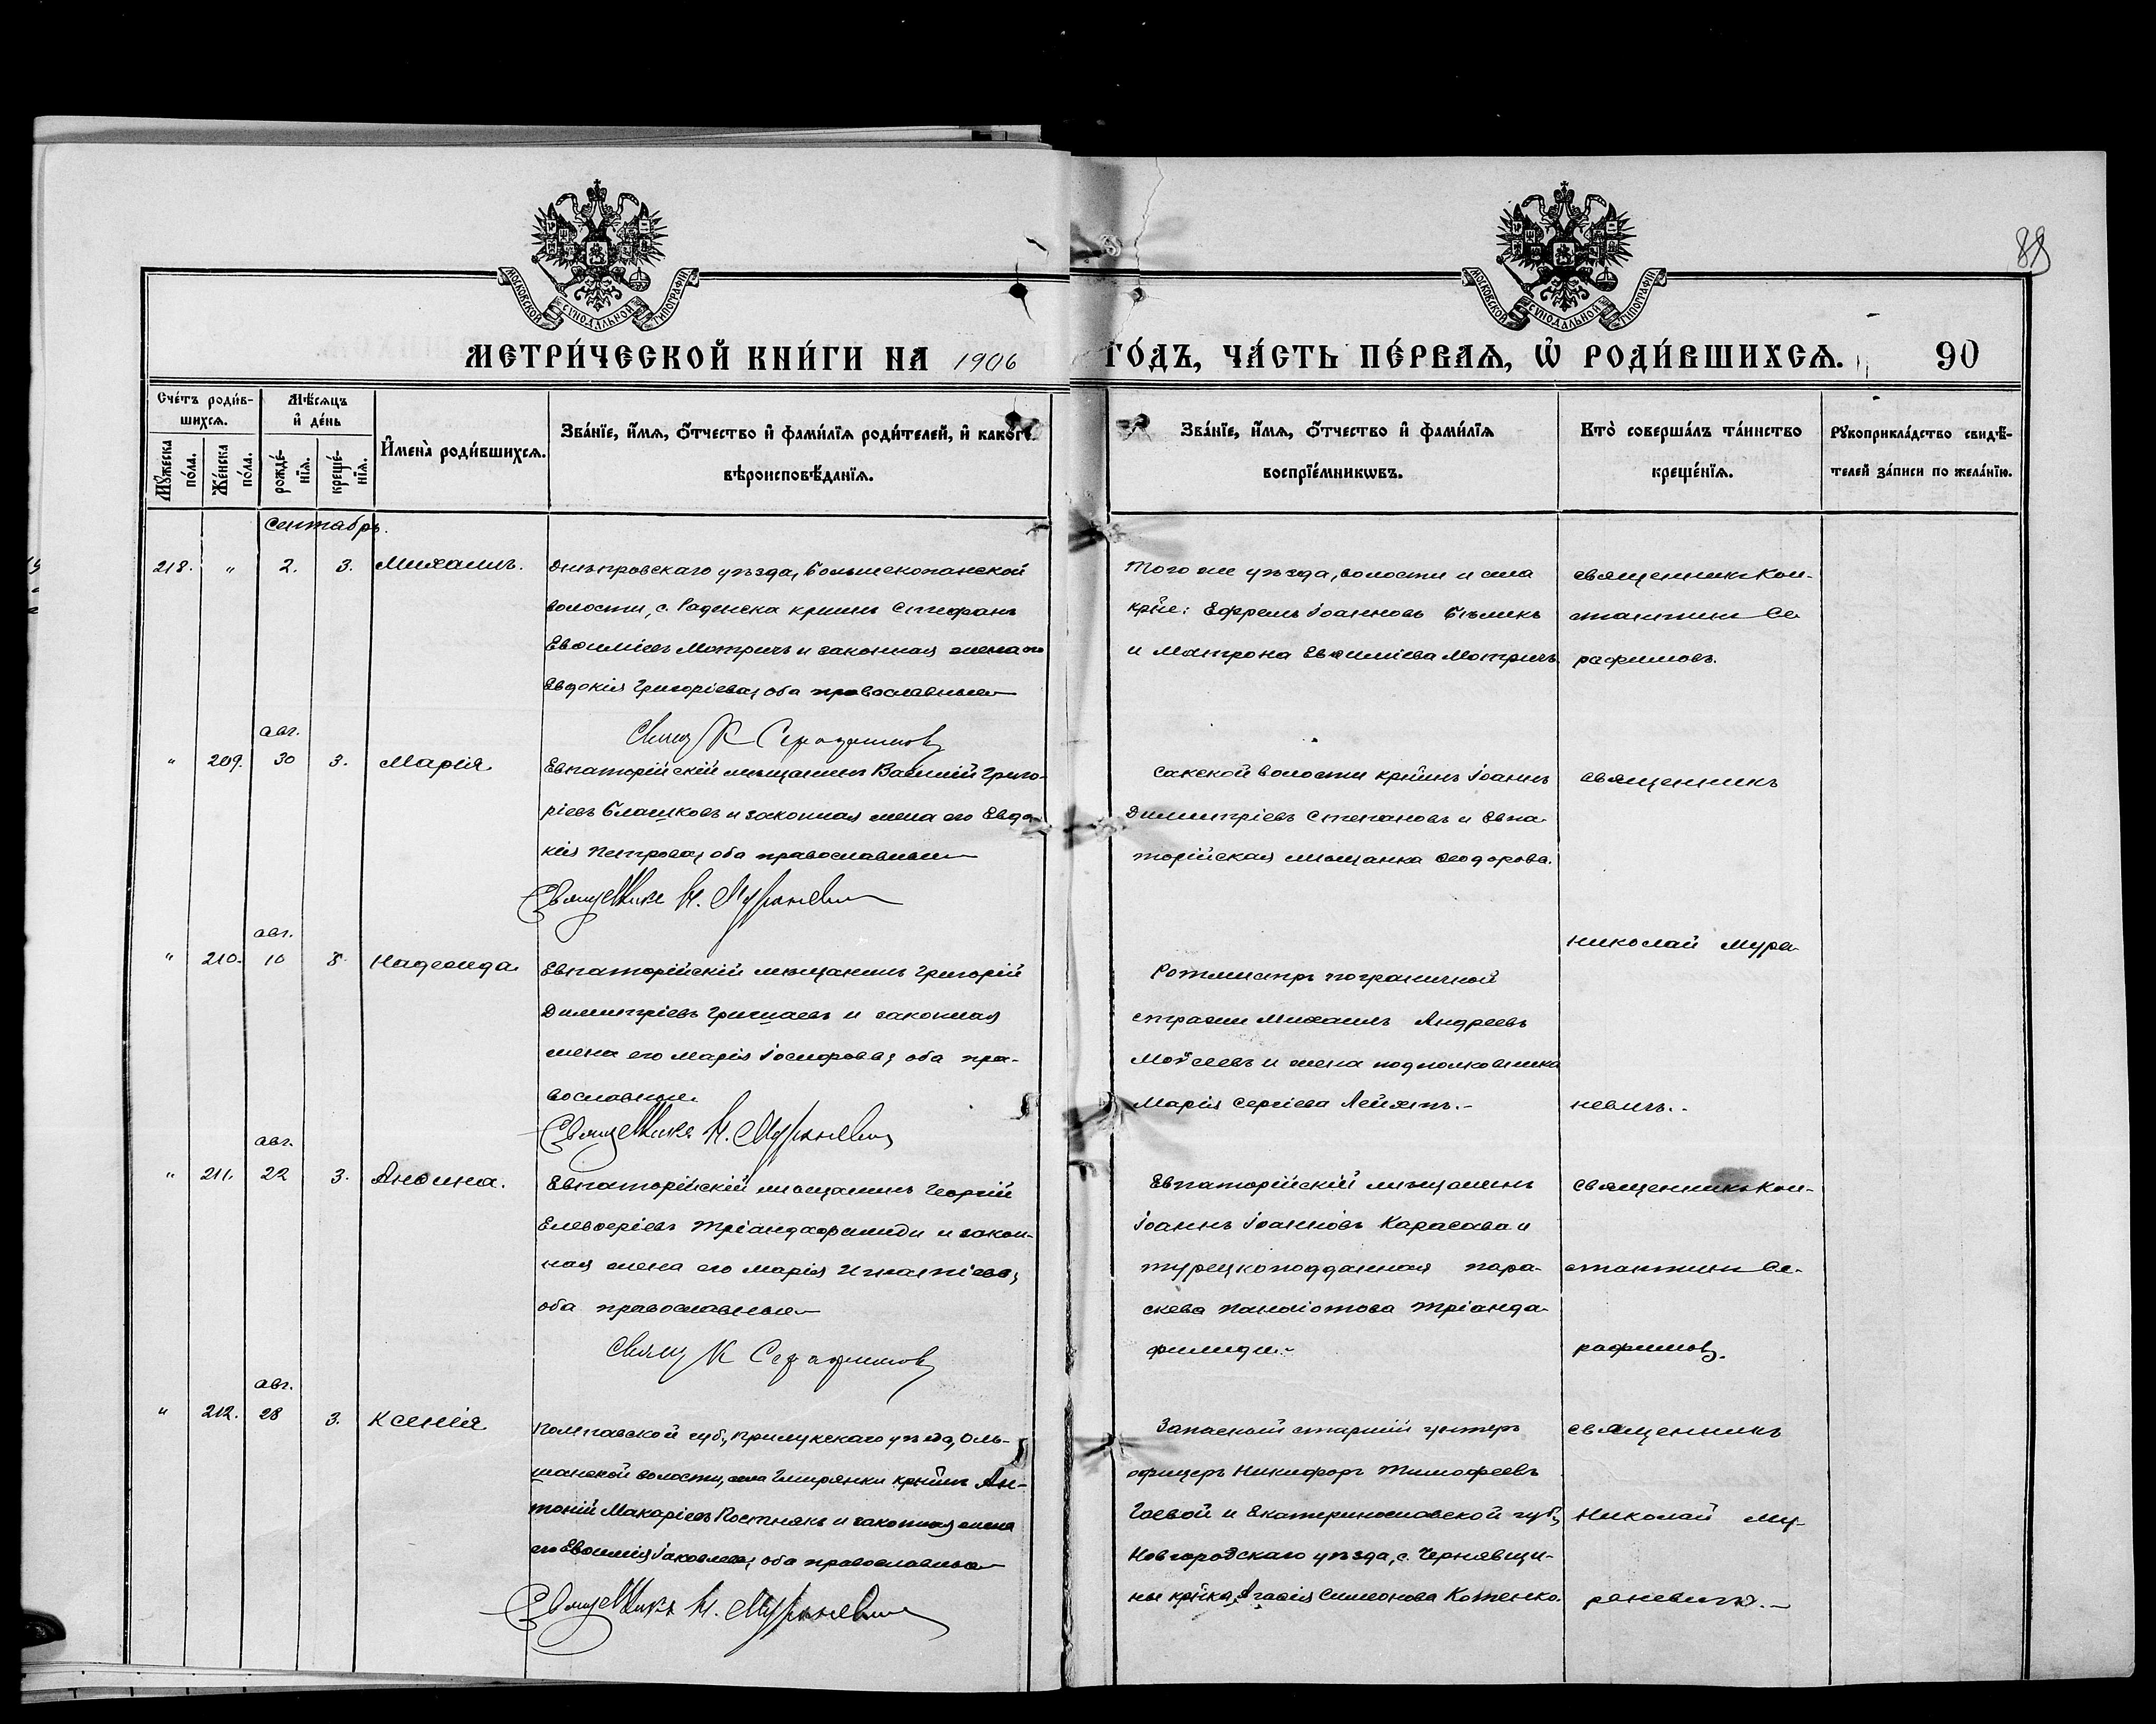 МОСКОВСКОЙ СѴНОДАЛЬНОЙ ТИПОГРАФІИ
МОСКОВСКОЙ СѴНОДАЛЬНОЙ ТИПОГРАФІИ
МЕТРИ́ЧЕСКОЙ КНИ́ГИ НА 1906
ГО́ДЪ, ЧА́СТЬ ПЕ́РВАѦ, Ѡ҆ РОДИ́ВШИХСѦ. 90
Сче́тъ роди́в-
шихсѧ.
Мѣ́сѧцъ
и҆ де́нь
Му́жеска
по́ла.
Же́нска
по́ла.
рожде́-
нїѧ.
креще́-
нїѧ.
И҆мена̀ роди́вшихсѧ.
Зва́нїе, и҆́мѧ, ѻ҆́тчество и҆ фами́лїѧ роди́телей, и҆ како́гѡ
вѣроисповѣ́данїѧ.
Зва́нїе, и҆́мѧ, ѻ҆́тчество и҆ фами́лїѧ
воспрїе́мникѡвъ.
Кто̀ соверша́лъ та́инство
креще́нїѧ.
Рꙋкоприкла́дство свидѣ́-
телей за́писи по жела́нїю.
Сентябрь.
218. " 2. 3. Михаилъ.
Днѣпровскаго уѣзда, Большекопанской
волости, с. Раденска крнинъ Стефанъ
Евѳиміевъ Мотричъ и законная жена его
Евдокія Григоріева, оба православные
Свящ К Серафимовъ
Того же уѣзда, волости и села
крне: Ефремъ Іоанновъ Бѣликъ
и Матрона Евѳиміева Мотричъ.
священникъ Кон-
стантинъ Се
рафимовъ.
авг.
" 209. 30 3. Марія
Евпаторійскій мѣщанинъ Василій Григо-
ріевъ Блашковъ и законная жена его Евдо-
кія Петрова, оба православные
Священникъ Н. Мураневич
Сакской волости крнинъ Іоаннъ
Димитріевъ Степановъ и Евпа-
торійская мѣщанка Ѳеодорова.
священникъ
авг.
" 210. 10 3. Надежда
Евпаторійскій мѣщанинъ Григорій
Димитріевъ Гришаевъ и законная
жена его Марія Іосифова, оба пра-
вославные.
Священникъ Н. Мураневич
Ротмистръ пограничной
стражи Михаилъ Андреевъ
Мойсеевъ и жена подполковника
Марія Сергіева Лейхтъ.-
Николай Мура-
невичъ.-
авг.
" 211. 22 3. Анѳина.
Евпаторійскій мѣщанинъ Георгій
Елевѳеріевъ Тріандафилиди и закон-
ная жена его Марія Игнатіева,
оба православные
Свящ К Серафимовъ
Евпаторійскій мѣщанинъ
Іоаннъ Іоанновъ Карасава и
турецкоподданная Пара-
скева Панаіотова Тріанда-
филиди.-
священникъ Кон-
стантинъ Се-
рафимовъ.
авг.
" 212. 28 3. Ксенія
Полтавской губ., Прилукскаго уѣзда, Оль-
шанской волости, села Гмирянки крнинъ Ан-
тоній Макаріевъ Постнякъ и законная жена
его Евѳимія Іаковлева, оба православные
Священникъ Н. Мураневич
Запасный старшій унтеръ
офицеръ Никифоръ Тимоѳеевъ
Гаевой и Екатеринославской губ.,
Новгородскаго уѣзда, с. Чернявщи-
ны крнка Агаѳія Симеонова Котенко.
священникъ
Николай Му-
раневичъ.-